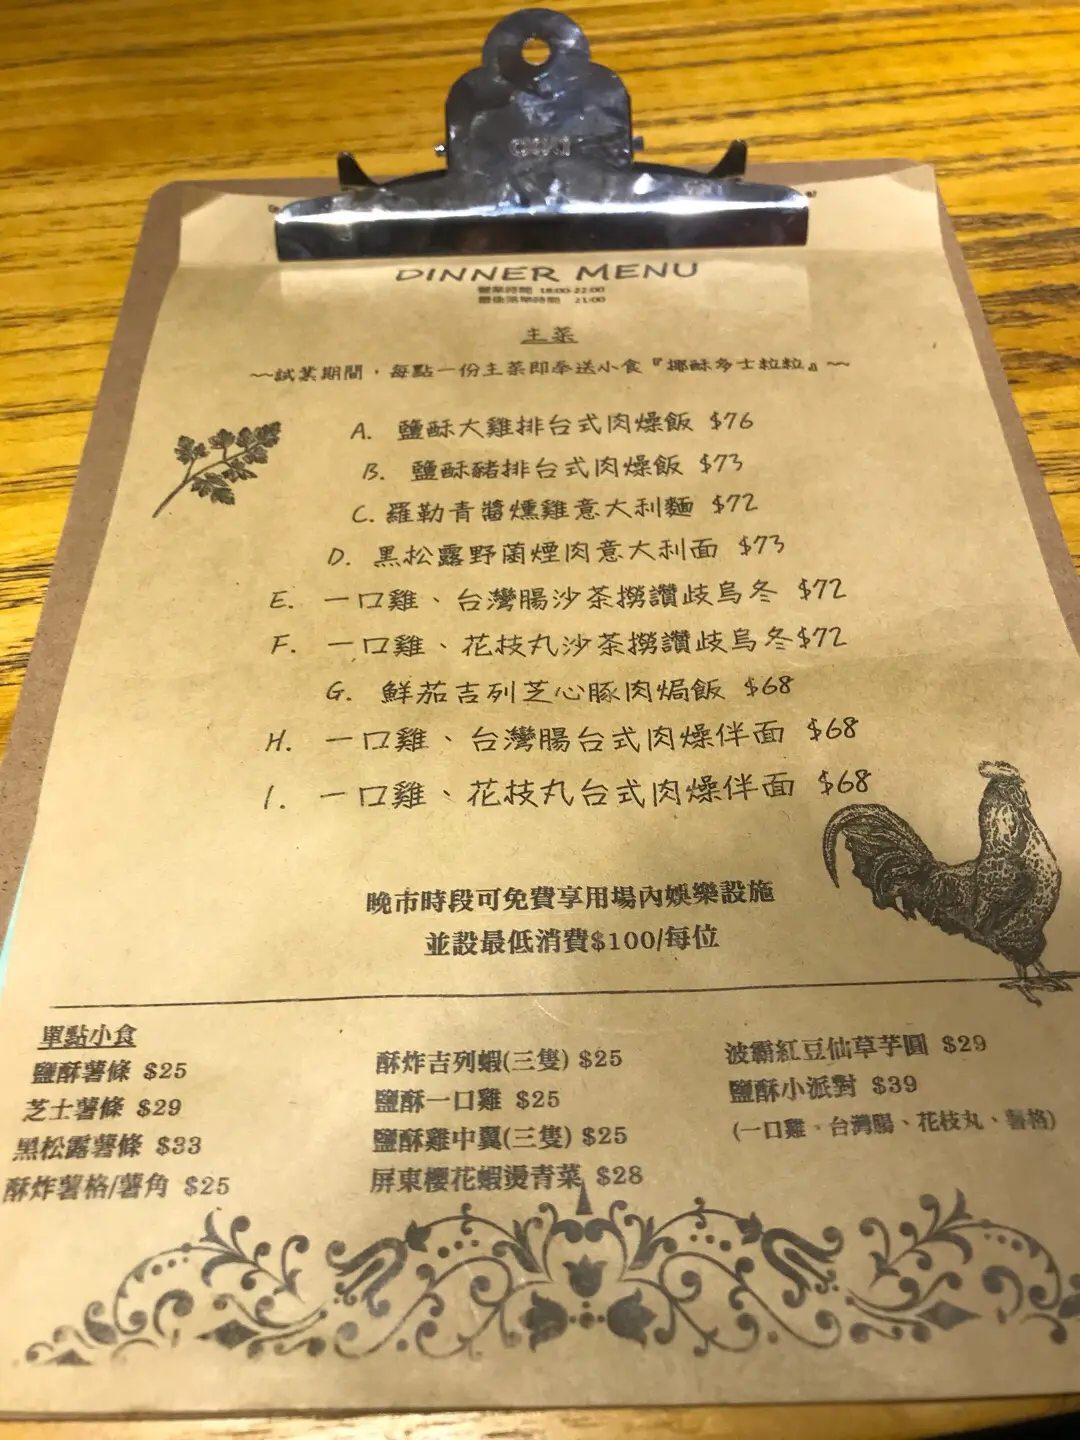 DINNER MENU
營業時間 18:00-22:00
最後落單時間 21:00
主菜
~~試業期間，每點一份主菜即奉送小食『椰酥多士粒粒』~~
A. 鹽酥大雞排台式肉燥飯 $76
B. 鹽酥豬排台式肉燥飯 $73
C. 羅勒青醬燻雞意大利麵 $72
D. 黑松露野菌煙肉意大利面 $73
E. 一口雞、台灣腸沙茶撈讚歧烏冬 $72
F. 一口雞、花枝丸沙茶撈讚歧烏冬 $72
G. 鮮茄吉列芝心豚肉焗飯 $68
H. 一口雞、台灣腸台式肉燥伴面 $68
I. 一口雞、花枝丸台式肉燥伴面 $68
晚市時段可免費享用場內娛樂設施
並設最低消費$100/每位
單點小食
鹽酥薯條 $25
芝士薯條 $29
黑松露薯條 $33
酥炸薯格/薯角 $25
酥炸吉列蝦(三隻) $25
鹽酥一口雞 $25
鹽酥雞中翼(三隻) $25
屏東櫻花蝦燙青菜 $28
波霸紅豆仙草芋圓 $29
鹽酥小派對 $39
(一口雞、台灣腸、花枝丸、薯格)